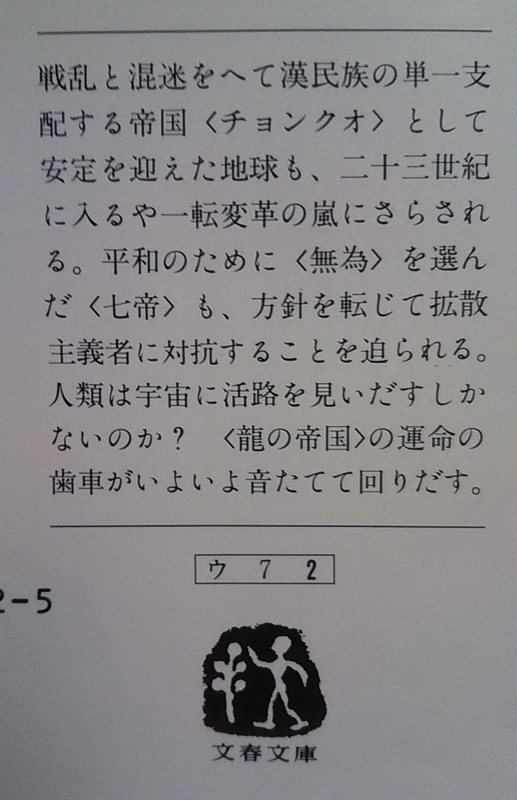 戦乱と混迷をへて漢民族の単一支
配する帝国〈チョンクオ〉として
安定を迎えた地球も、二十三世紀
に入るや一転変革の嵐にさらされ
る。平和のために〈無為〉を選ん
だ〈七帝〉も、方針を転じて拡散
主義者に対抗することを迫られる。
人類は宇宙に活路を見いだすしか
ないのか？　〈龍の帝国〉の運命の
歯車がいよいよ音たてて回りだす。
ウ 7 2
2-5
文春文庫